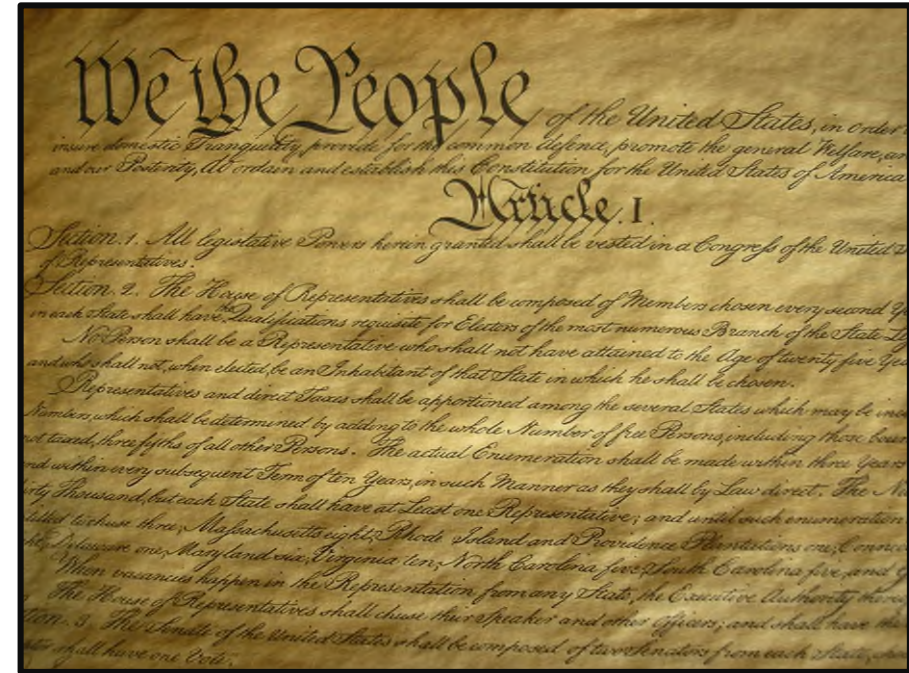 We the People of the United States, in order
insure domestic Tranquility, provide for the common defence, promote the general Welfare, an
and our Posterity, do ordain and establish this Constitution for the United States of America
Article. I.
Section. 1. All legislative Powers herein granted shall be vested in a Congress of the United
of Representatives.
Section. 2. The House of Representatives shall be composed of Members chosen every second Ye
in each State shall have the Qualifications requisite for Electors of the most numerous Branch of the State Le
No Person shall be a Representative who shall not have attained to the Age of twenty five Yea
and who shall not, when elected, be an Inhabitant of that State in which he shall be chosen.
Representatives and direct Taxes shall be apportioned among the several States which may be
Numbers, which shall be determined by adding to the whole Number of free Persons, including those boun
not taxed, three fifths of all other Persons. The actual Enumeration shall be made within three Years
nd within every subsequent Term of ten Years, in such Manner as they shall by Law direct. The Nu
irty Thousand, but each State shall have at Least one Representative; and until such enumeration
titled to chuse three, Massachusetts eight, Rhode Island and Providence Plantations one, Connec
ght, Delaware one, Maryland six, Virginia ten, North Carolina five, South Carolina five, and
When vacancies happen in the Representation from any State, the Executive Authority
The House of Representatives shall chuse their Speaker and other Officers; and shall have
tion. 3. The Senate of the United States shall be composed of two Senators from each State,
shall have one Vote.